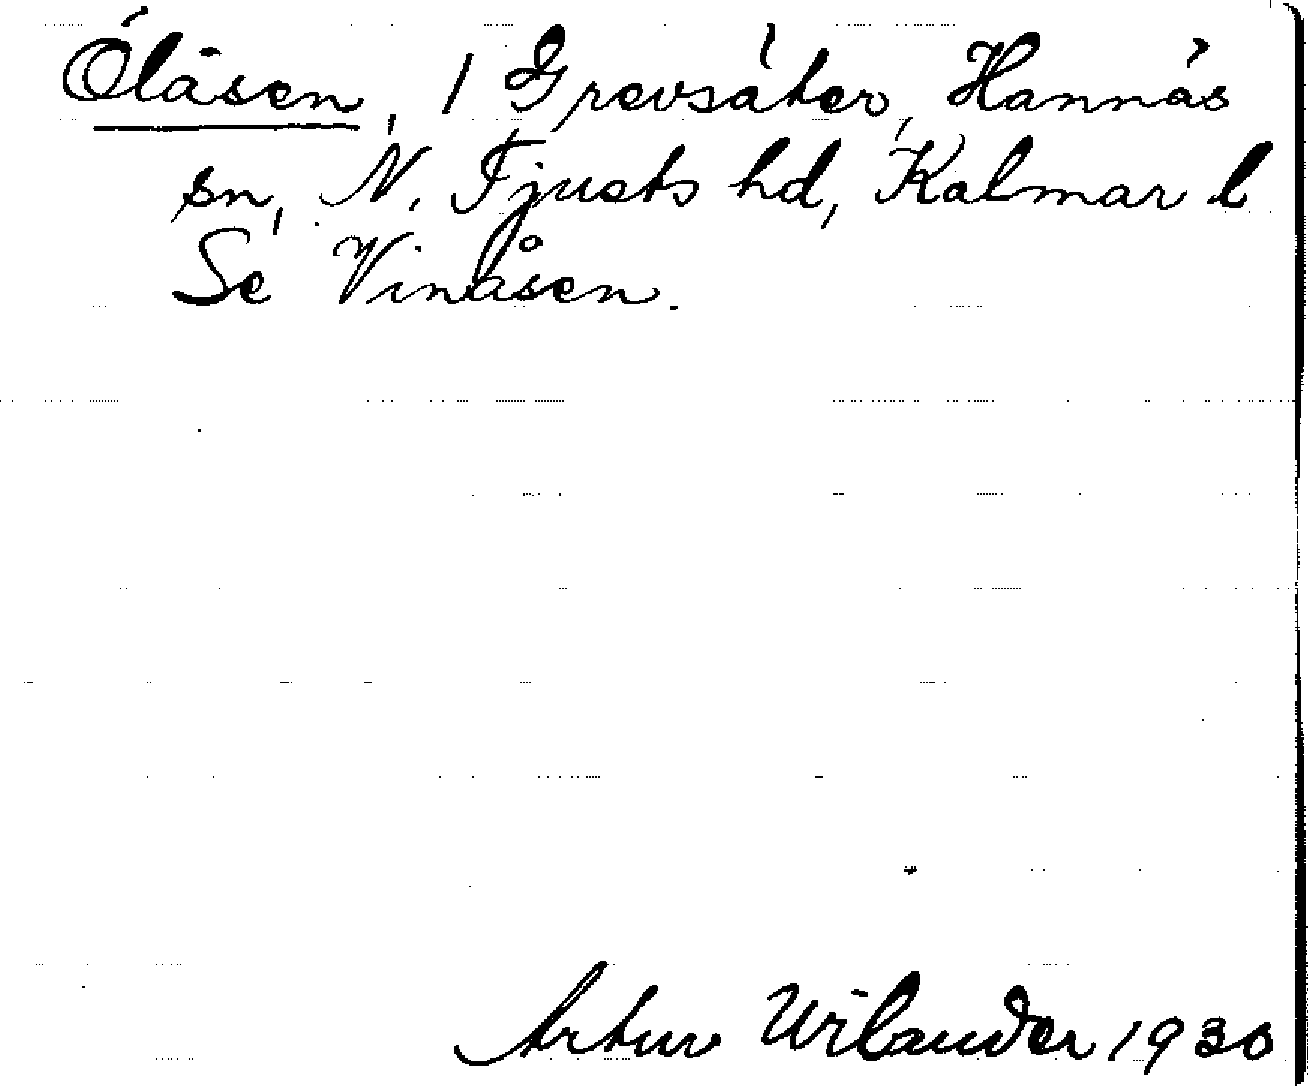 Ölåsen, 1 Grevsäter, Hannäs
sn, N. Tjusts hd, Kalmar l
Se Vinåsen.
Artur Wilander 1930